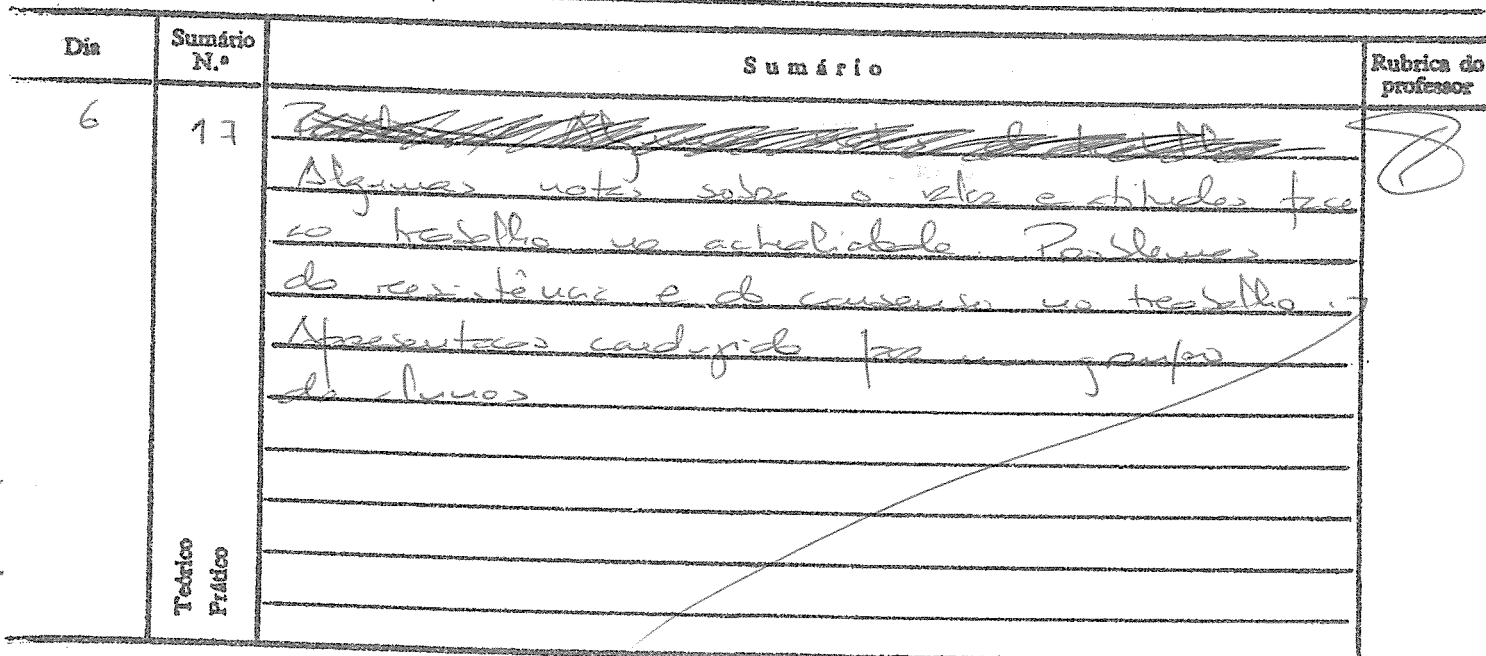 Dia
Sumário N.º
Sumário
Rubrica do professor
6
17
Algumas notas sobre o valor e atitudes face
ao trabalho na actualidade. Problemas
da resistência e do consenso no trabalho.
Apresentação conduzida por um grupo
de alunos
Teórico
Prático